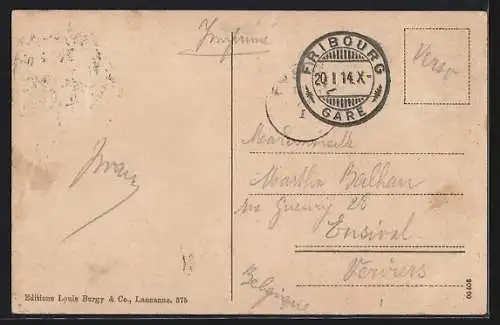 Imprimé
FRIBOURG
20 I 14. X-
GARE
I
Verso
Mademoiselle
Martha Balhan
28
Ensival
Verviers
Belgique
Editions Louis Burgy & Co., Lausanne. 375